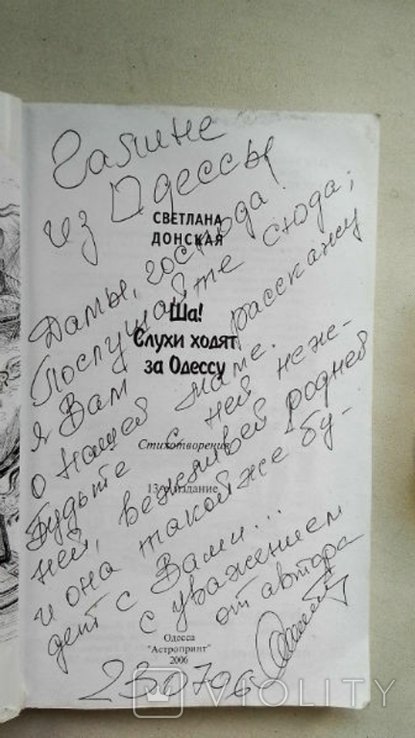 Галине
из Одессы
СВЕТЛАНА
ДОНСКАЯ
Дамы, господа!
Послушайте сюда;
я Вам расскажу
о нашей маме.
Будьте с ней неже-
ней, вежливей родней
и она такой же бу-
дет с Вами...
с уважением
от автора
Ша!
Слухи ходят
за Одессу
Стихотворения
13-е издание
Одесса
"Астропринт"
2006
230706
VIOLITY